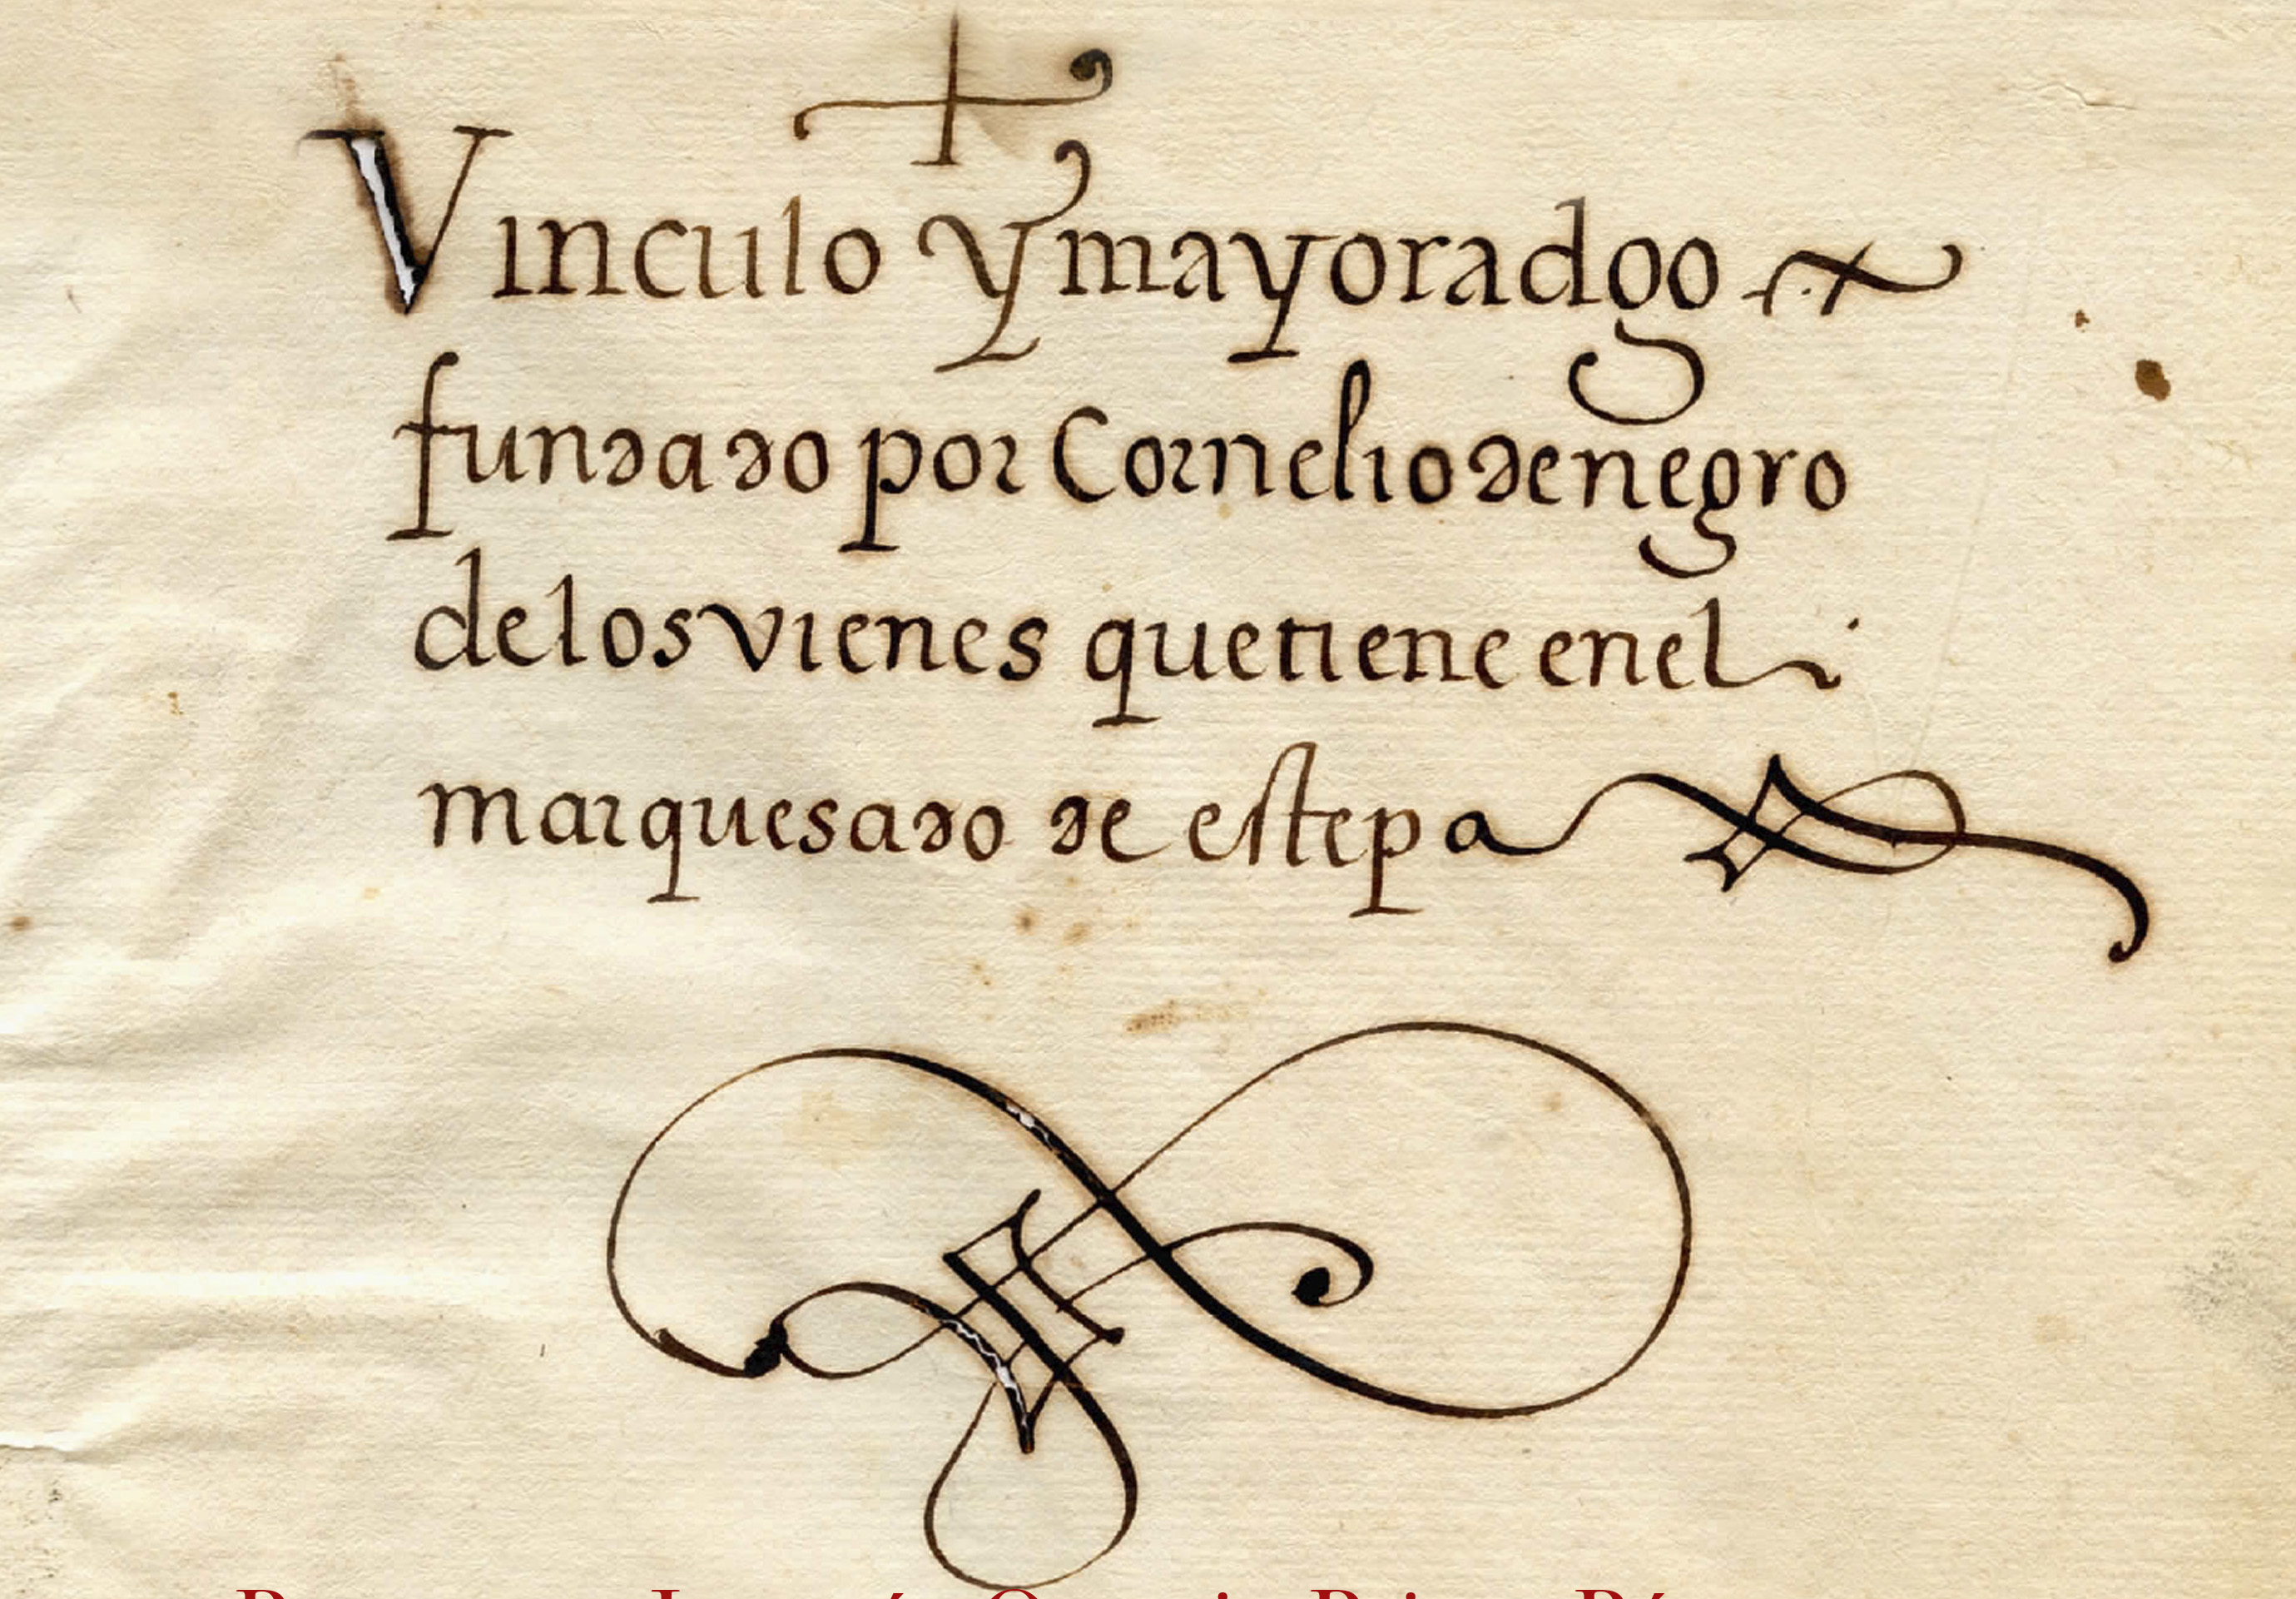 Vinculo y mayoradgo
fundado por Cornelio de negro
de los vienes que tiene en el
marquesado de estepa